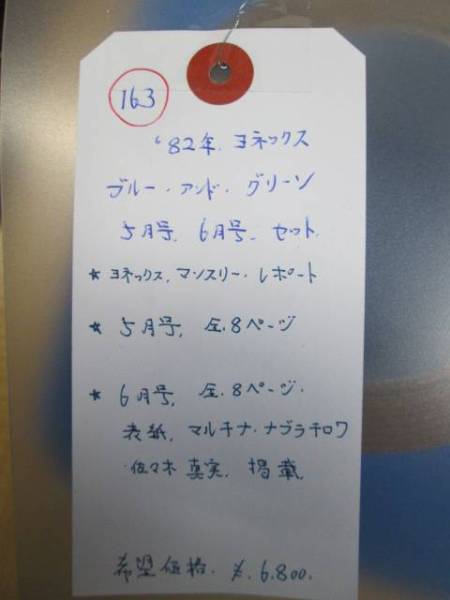 163
'82年.ヨネックス
ブルー・アンド・グリーン
5月号.6月号.セット.
★ヨネックス.マンスリー・レポート
★5月号.全.8ページ
★6月号.全.8ページ.
表紙.マルチナ・ナブラチロワ
・佐々木真実.掲載.
希望価格.¥.6.800.